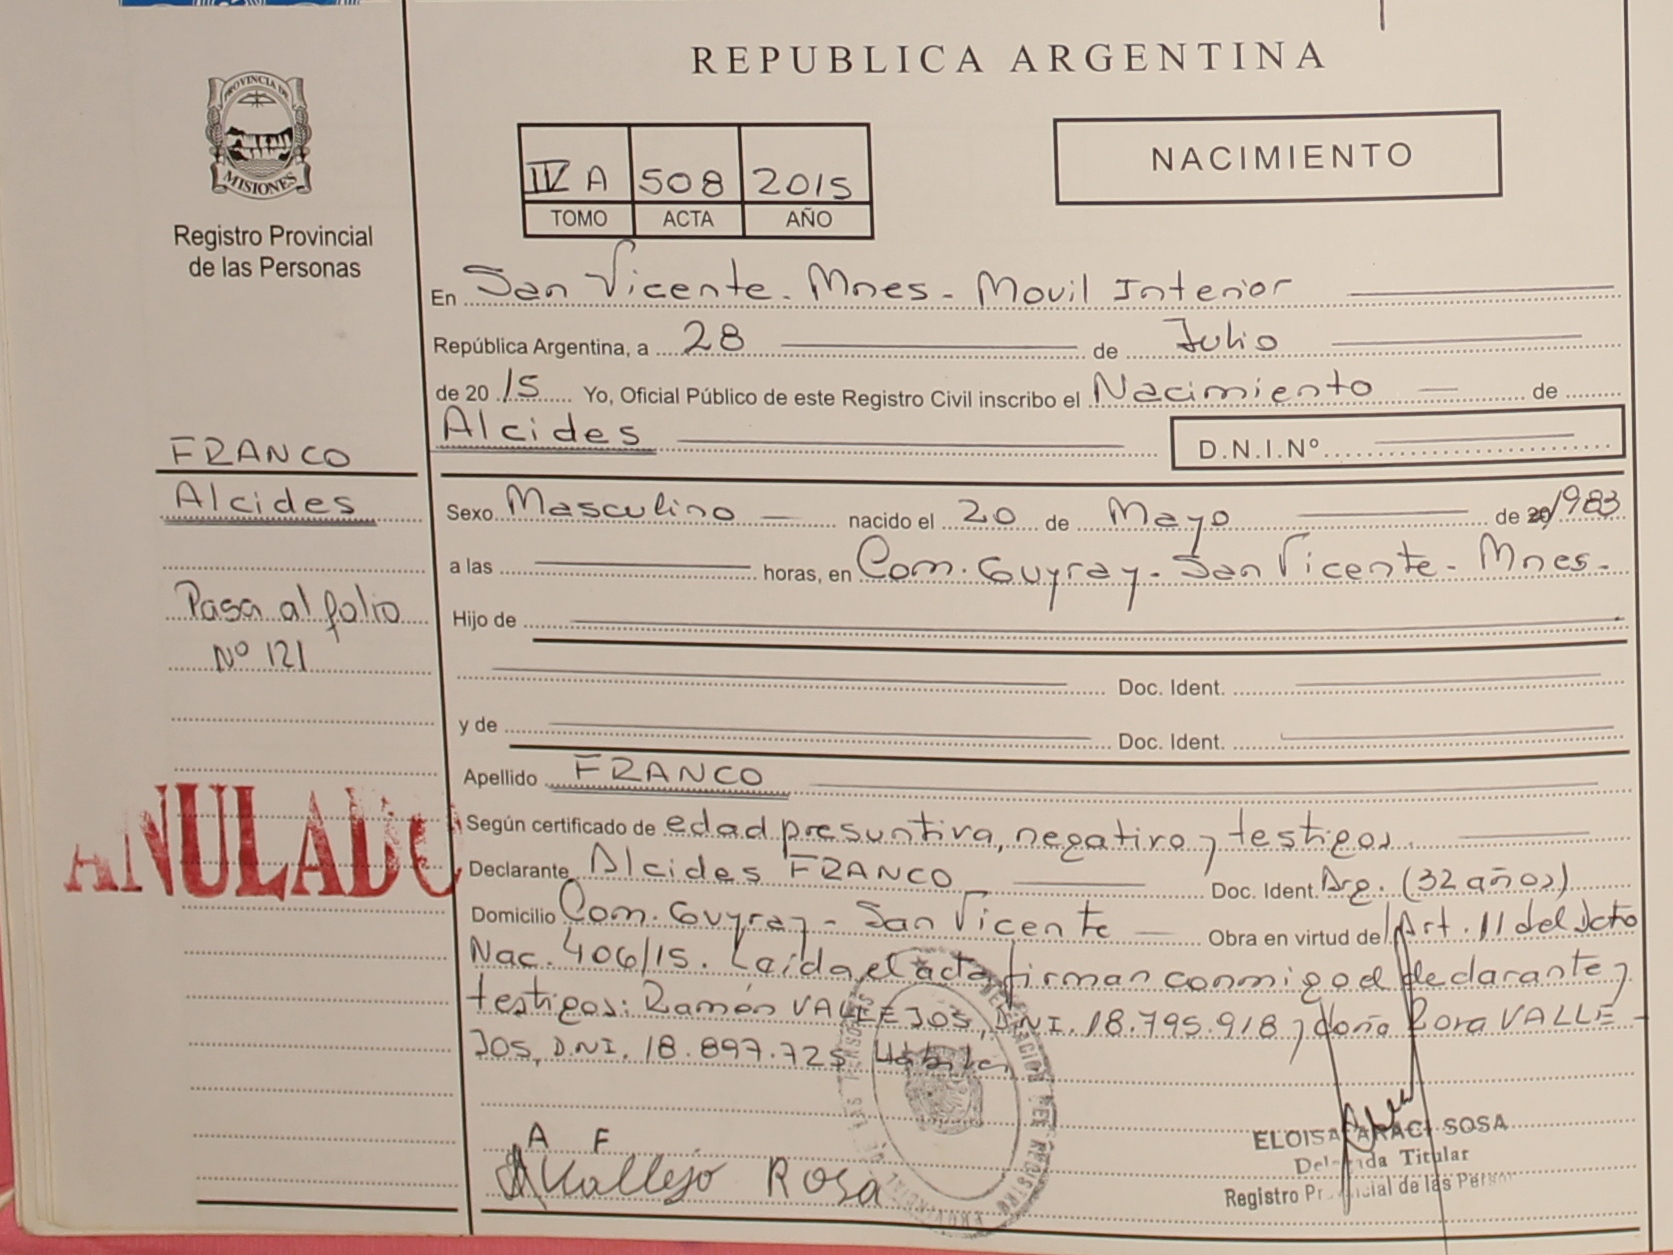 REPUBLICA ARGENTINA
PROVINCIA DE
MISIONES
Registro Provincial
de las Personas
IV A 508 2015
TOMO ACTA AÑO
NACIMIENTO
En San Vicente - Mnes - Movil Interior
República Argentina, a 28 de Julio
de 20 15 Yo, Oficial Público de este Registro Civil inscribo el Nacimiento de
Alcides D.N.I.Nº
FRANCO
Alcides
Pasa al folio
Nº 121
ANULADO
Sexo Masculino nacido el 20 de Mayo de 20 1983
a las horas, en Com. Guyray - San Vicente - Mnes -
Hijo de
Doc. Ident.
y de Doc. Ident.
Apellido FRANCO
Según certificado de edad presuntiva, negativo y testigos.
Declarante Alcides FRANCO Doc. Ident. Arg. (32 años)
Domicilio Com. Guyray - San Vicente Obra en virtud del Art. 11 del Dcto
Nac. 406/15. Leída el acta firman conmigo el declarante y
testigos: Ramón VALLEJOS, DNI. 18.795.918 y doña Rosa VALLE-
JOS, D.NI. 18.897.725
A F
Vallejo Rosa
ELOISA ARACI SOSA
Delegada Titular
Registro Provincial de las Personas